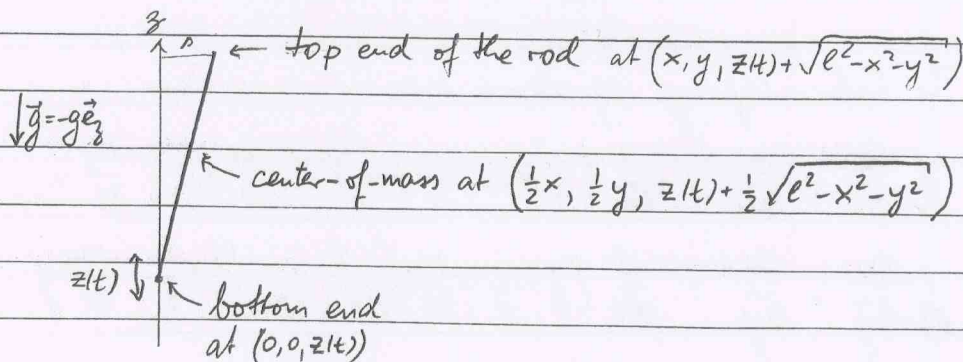 z
s
← top end of the rod at (x, y, z(t) + √(ℓ²-x²-y²))
g⃗ = -g e⃗_z
center-of-mass at (½x, ½y, z(t) + ½√(ℓ²-x²-y²))
z(t)
bottom end
at (0,0,z(t))